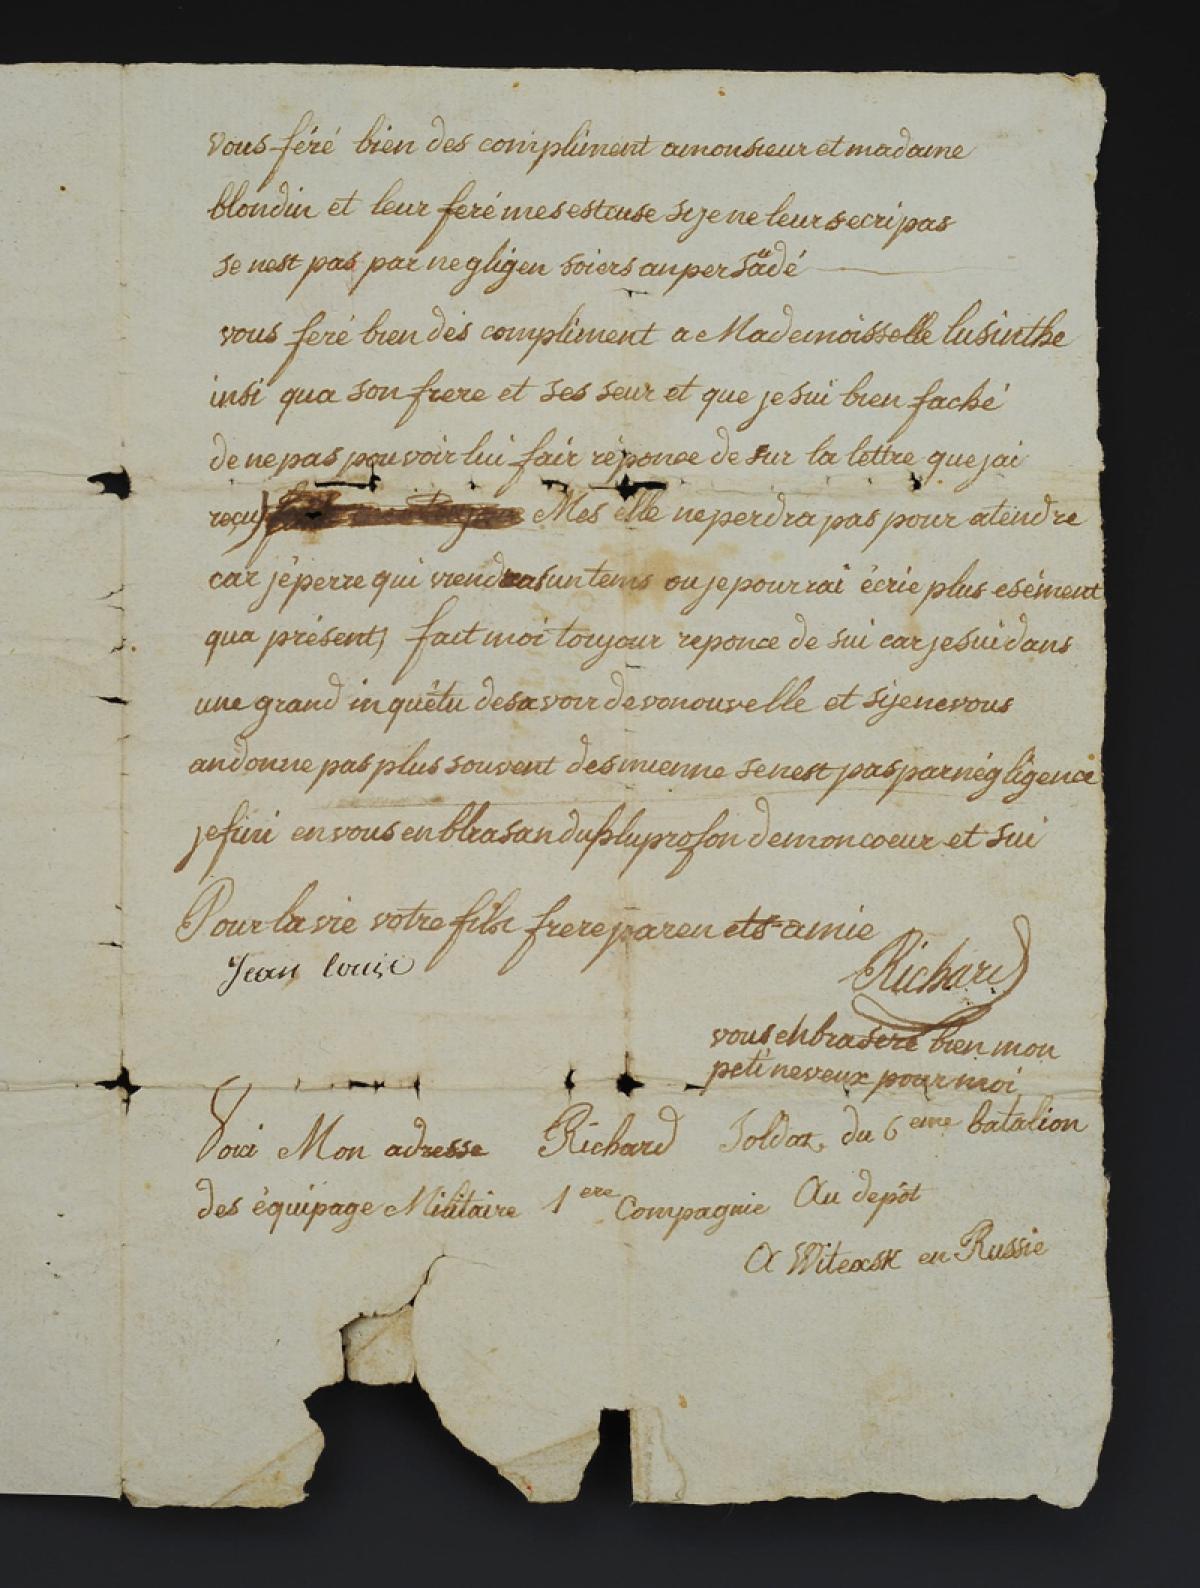 vous féré bien des compliment amonsieur et madame
blondin et leur feré mes estcuse sije ne leur secri pas
se nest pas par negligen soiers an persädé
vous feré bien des compliment a Mademoisselle lusinthe
insi qua son frere et ses seur et que je sui bien faché
de ne pas pouvoir lui fair réponce de sur la lettre que jai
reçu Mes elle ne perdra pas pour atendre
car jéperre qui viendras un tems ou je pourrai écrie plus esément
qua présent, fait moi toujour reponce de sui car je sui dans
une grand inquêtu de savoir de vo nouvelle et si je ne vous
an donne pas plus souvent des mienne se nest pas par négligence
je fini en vous enbllrasan du plu profon de mon coeur et sui
Pour la vie votre fils frere paren ets amie
Jean louis
Richard
vous enbraseré bien mon
peti neveux pour moi
Voici Mon adresse Richard Soldat du 6eme batalion
des équipage Militaire 1ere Compagnie Au depôt
A Witexsk en Russie